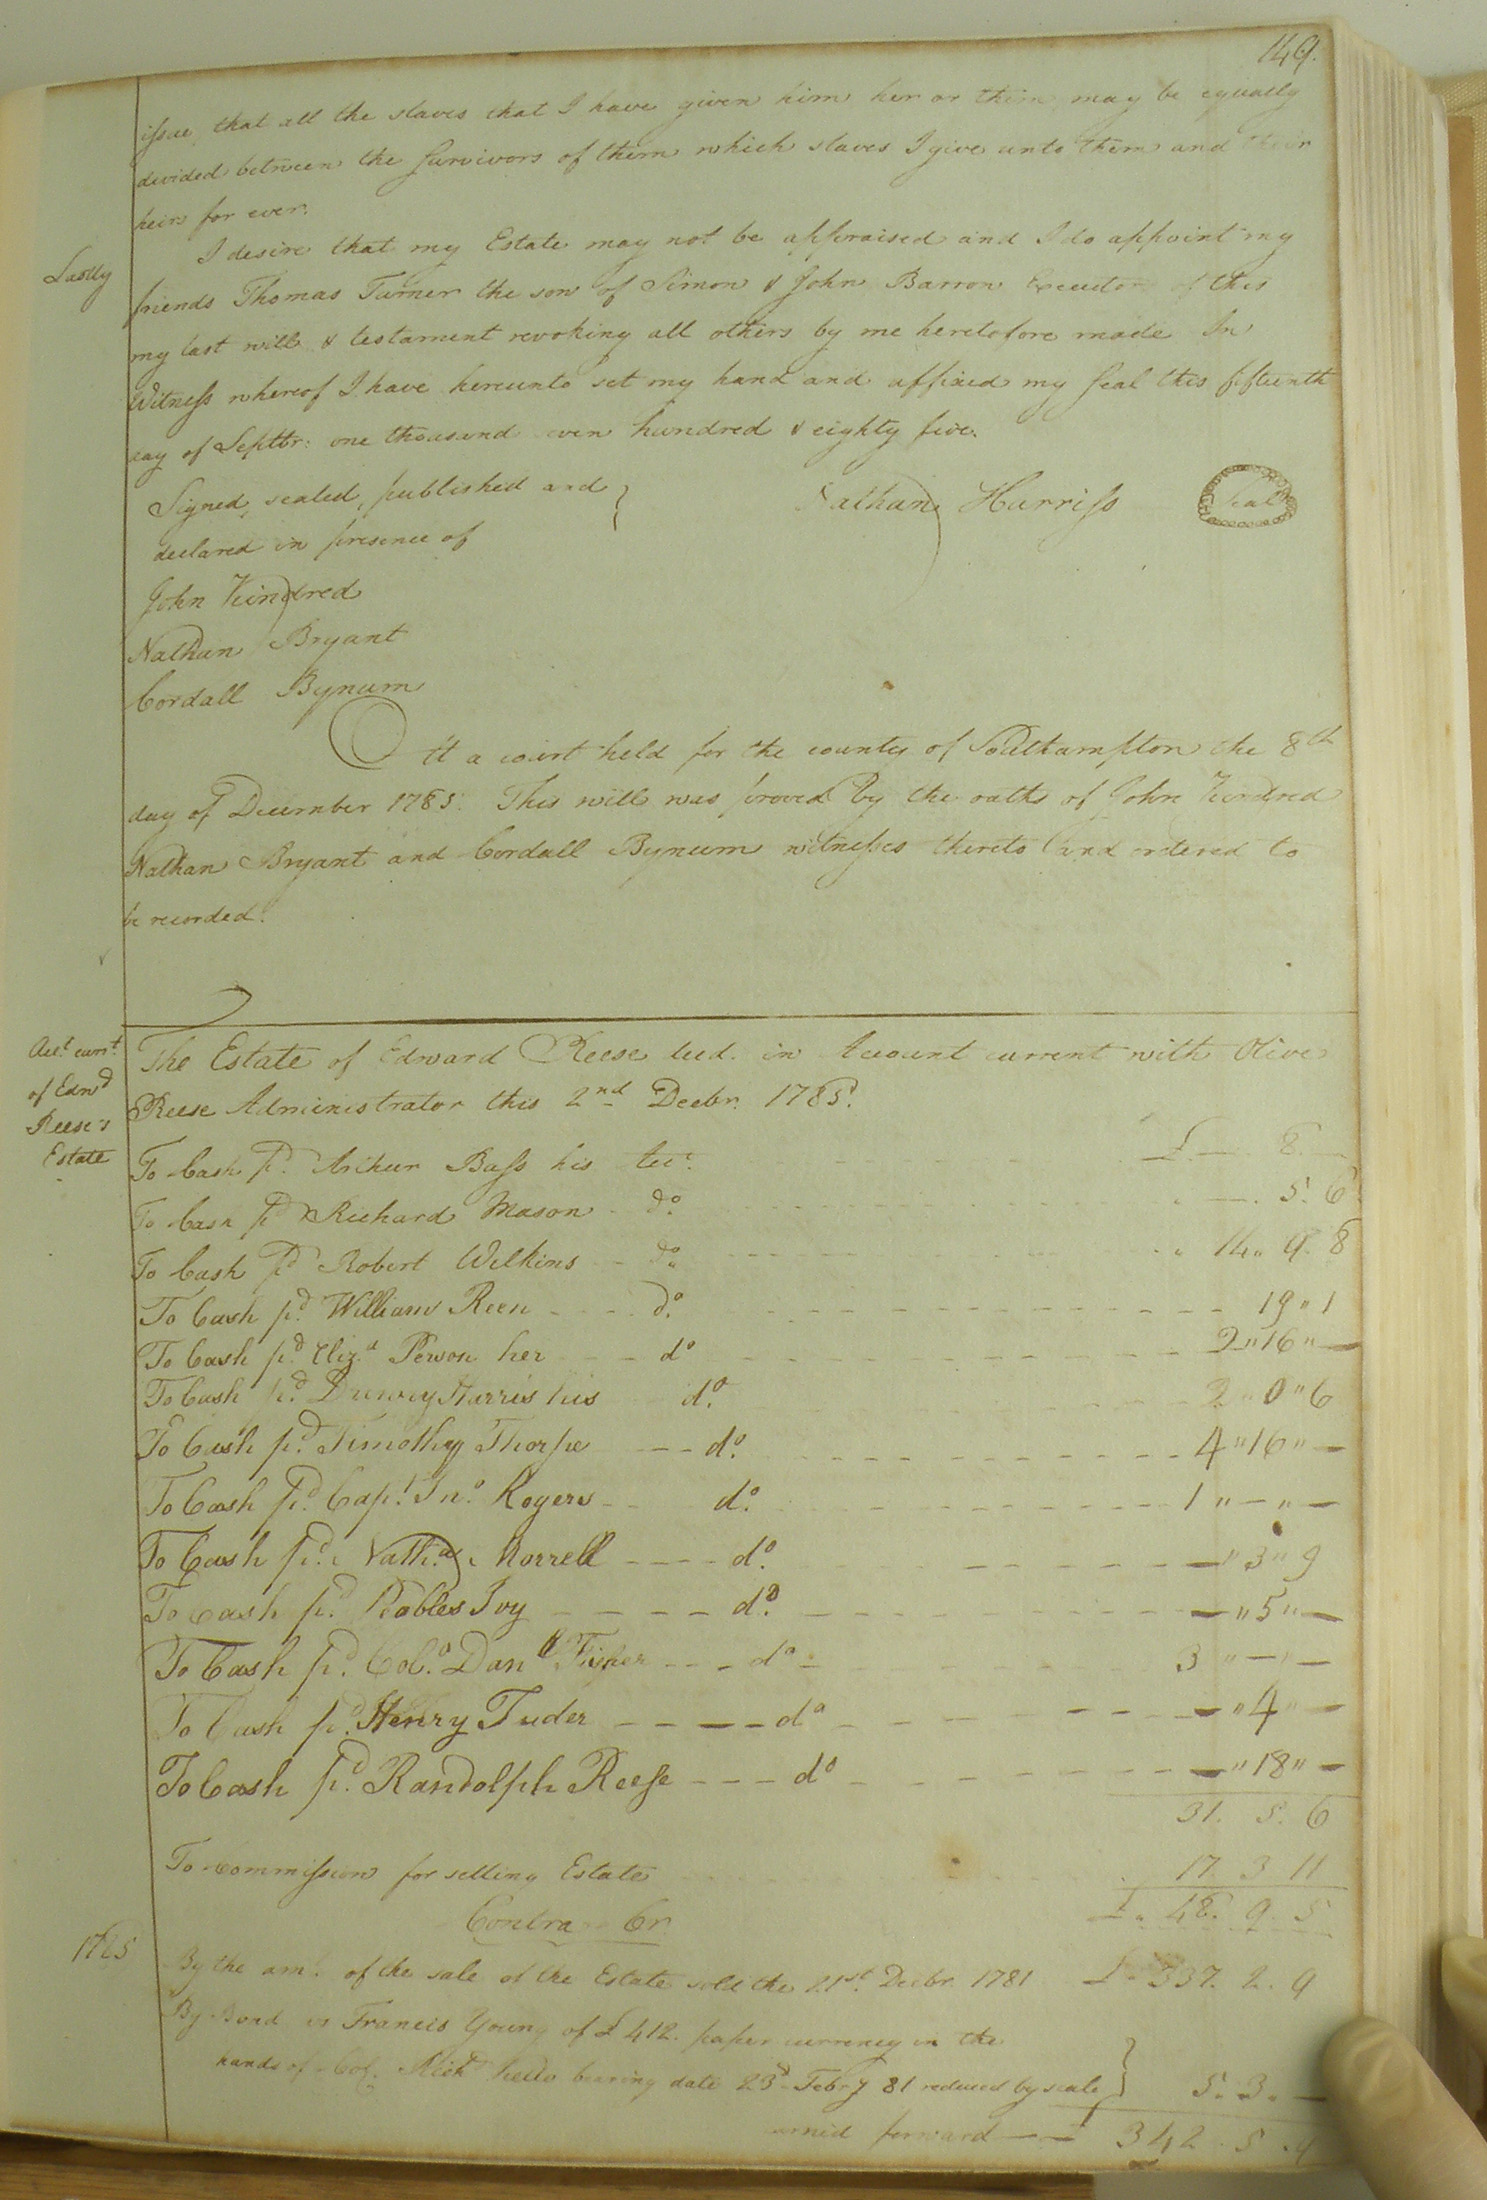 149.
issue that all the slaves that I have given him her or them may be equally
divided between the survivors of them which slaves I give unto them and their
heirs for ever.
Lastly I desire that my Estate may not be appraised and I do appoint my
friends Thomas Turner the son of Simon & John Barron Executors of this
my last will & testament revoking all others by me heretofore made In
Witness whereof I have hereunto set my hand and affixed my seal this fifteenth
day of Septbr: one thousand even hundred & eighty five.
Signed, sealed, published and } Nathan Harriss Seal
declared in presence of
John Kindred
Nathan Bryant
Cordall Bynum
At a court held for the county of Southampton the 8th
day of December 1785. This will was proved by the oaths of John Kindred
Nathan Bryant and Cordall Bynum witnesses thereto and ordered to
be recorded.
Acct. currt.
of Edwd
Reese's
Estate
The Estate of Edward Reese decd. in Account current with Olive
Reese Administrator this 2nd Decbr. 1785.
To Cash pd. Arthur Bass his acct. £ — . 8. —
To Cash pd Richard Mason do. — . 5. 6
To Cash pd Robert Wilkins do. 14. 9. 8
To Cash pd. William Reen do. 19 " 1
To Cash pd. Eliza her do 2 " 16 " —
To Cash pd. Drewry Harris his do. 2 " 0 " 6
To Cash pd. Timothy Thorpe do. 4 " 16 " —
To Cash pd. Capt. Jno. Rogers do. 1 " — " —
To Cash pd. Nathan Morrell do. — " 3 " 9
To Cash pd. Robles Ivy do. — " 5 " —
To Cash pd. Colo. Danl. Fisher do 3 " — " —
To Cash pd. Henry Tuder do — " 4 " —
To Cash pd. Randolph Reese do — " 18 " —
31. 5. 6
To Commission for selling Estate 17. 3 11
£. 48. 9. 5
Contra Cr
1785 By the amt. of the sale of the Estate sold the 21st. Decbr. 1781 £. 337. 2. 9
By Bond vs Francis Young of £ 412. paper currency in the
hands of Col. bearing date 23d. Febry 81 reduced by scale } 5. 3. —
forward — £ 342. 5. 9